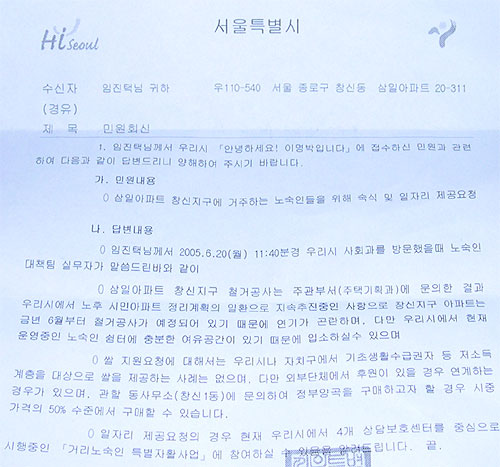 서울특별시
Hi Seoul
수신자 임진택님 귀하 우110-540 서울 종로구 창신동 삼일아파트 20-311
(경유)
제 목 민원회신
1. 임진택님께서 우리시 「안녕하세요! 이명박입니다」에 접수하신 민원과 관련
하여 다음과 같이 답변드리니 양해하여 주시기 바랍니다.
가. 민원내용
0 삼일아파트 창신지구에 거주하는 노숙인들을 위해 숙식 및 일자리 제공요청
나. 답변내용
0 임진택님께서 2005.6.20(월) 11:40분경 우리시 사회과를 방문했을때 노숙인
대책팀 실무자가 말씀드린바와 같이
0 삼일아파트 창신지구 철거공사는 주관부서(주택기획과)에 문의한 결과
우리시에서 노후 시민아파트 정리계획의 일환으로 지속추진중인 사항으로 창신지구 아파트는
금년 6월부터 철거공사가 예정되어 있기 때문에 연기가 곤란하며, 다만 우리시에서 현재
운영중인 노숙인 쉼터에 충분한 여유공간이 있기 때문에 입소하실수 있으며
0 쌀 지원요청에 대해서는 우리시나 자치구에서 기초생활수급권자 등 저소득
계층을 대상으로 쌀을 제공하는 사례는 없으며, 다만 외부단체에서 후원이 있을 경우 연계하는
경우가 있으며, 관할 동사무소(창신1동)에 문의하여 정부양곡을 구매하고자 할 경우 시중
가격의 50% 수준에서 구매할 수 있습니다.
0 일자리 제공요청의 경우 현재 우리시에서 4개 상담보호센터를 중심으로
시행중인 「거리노숙인 특별자활사업」에 참여하실 수 있음을 알려드립니다. 끝.